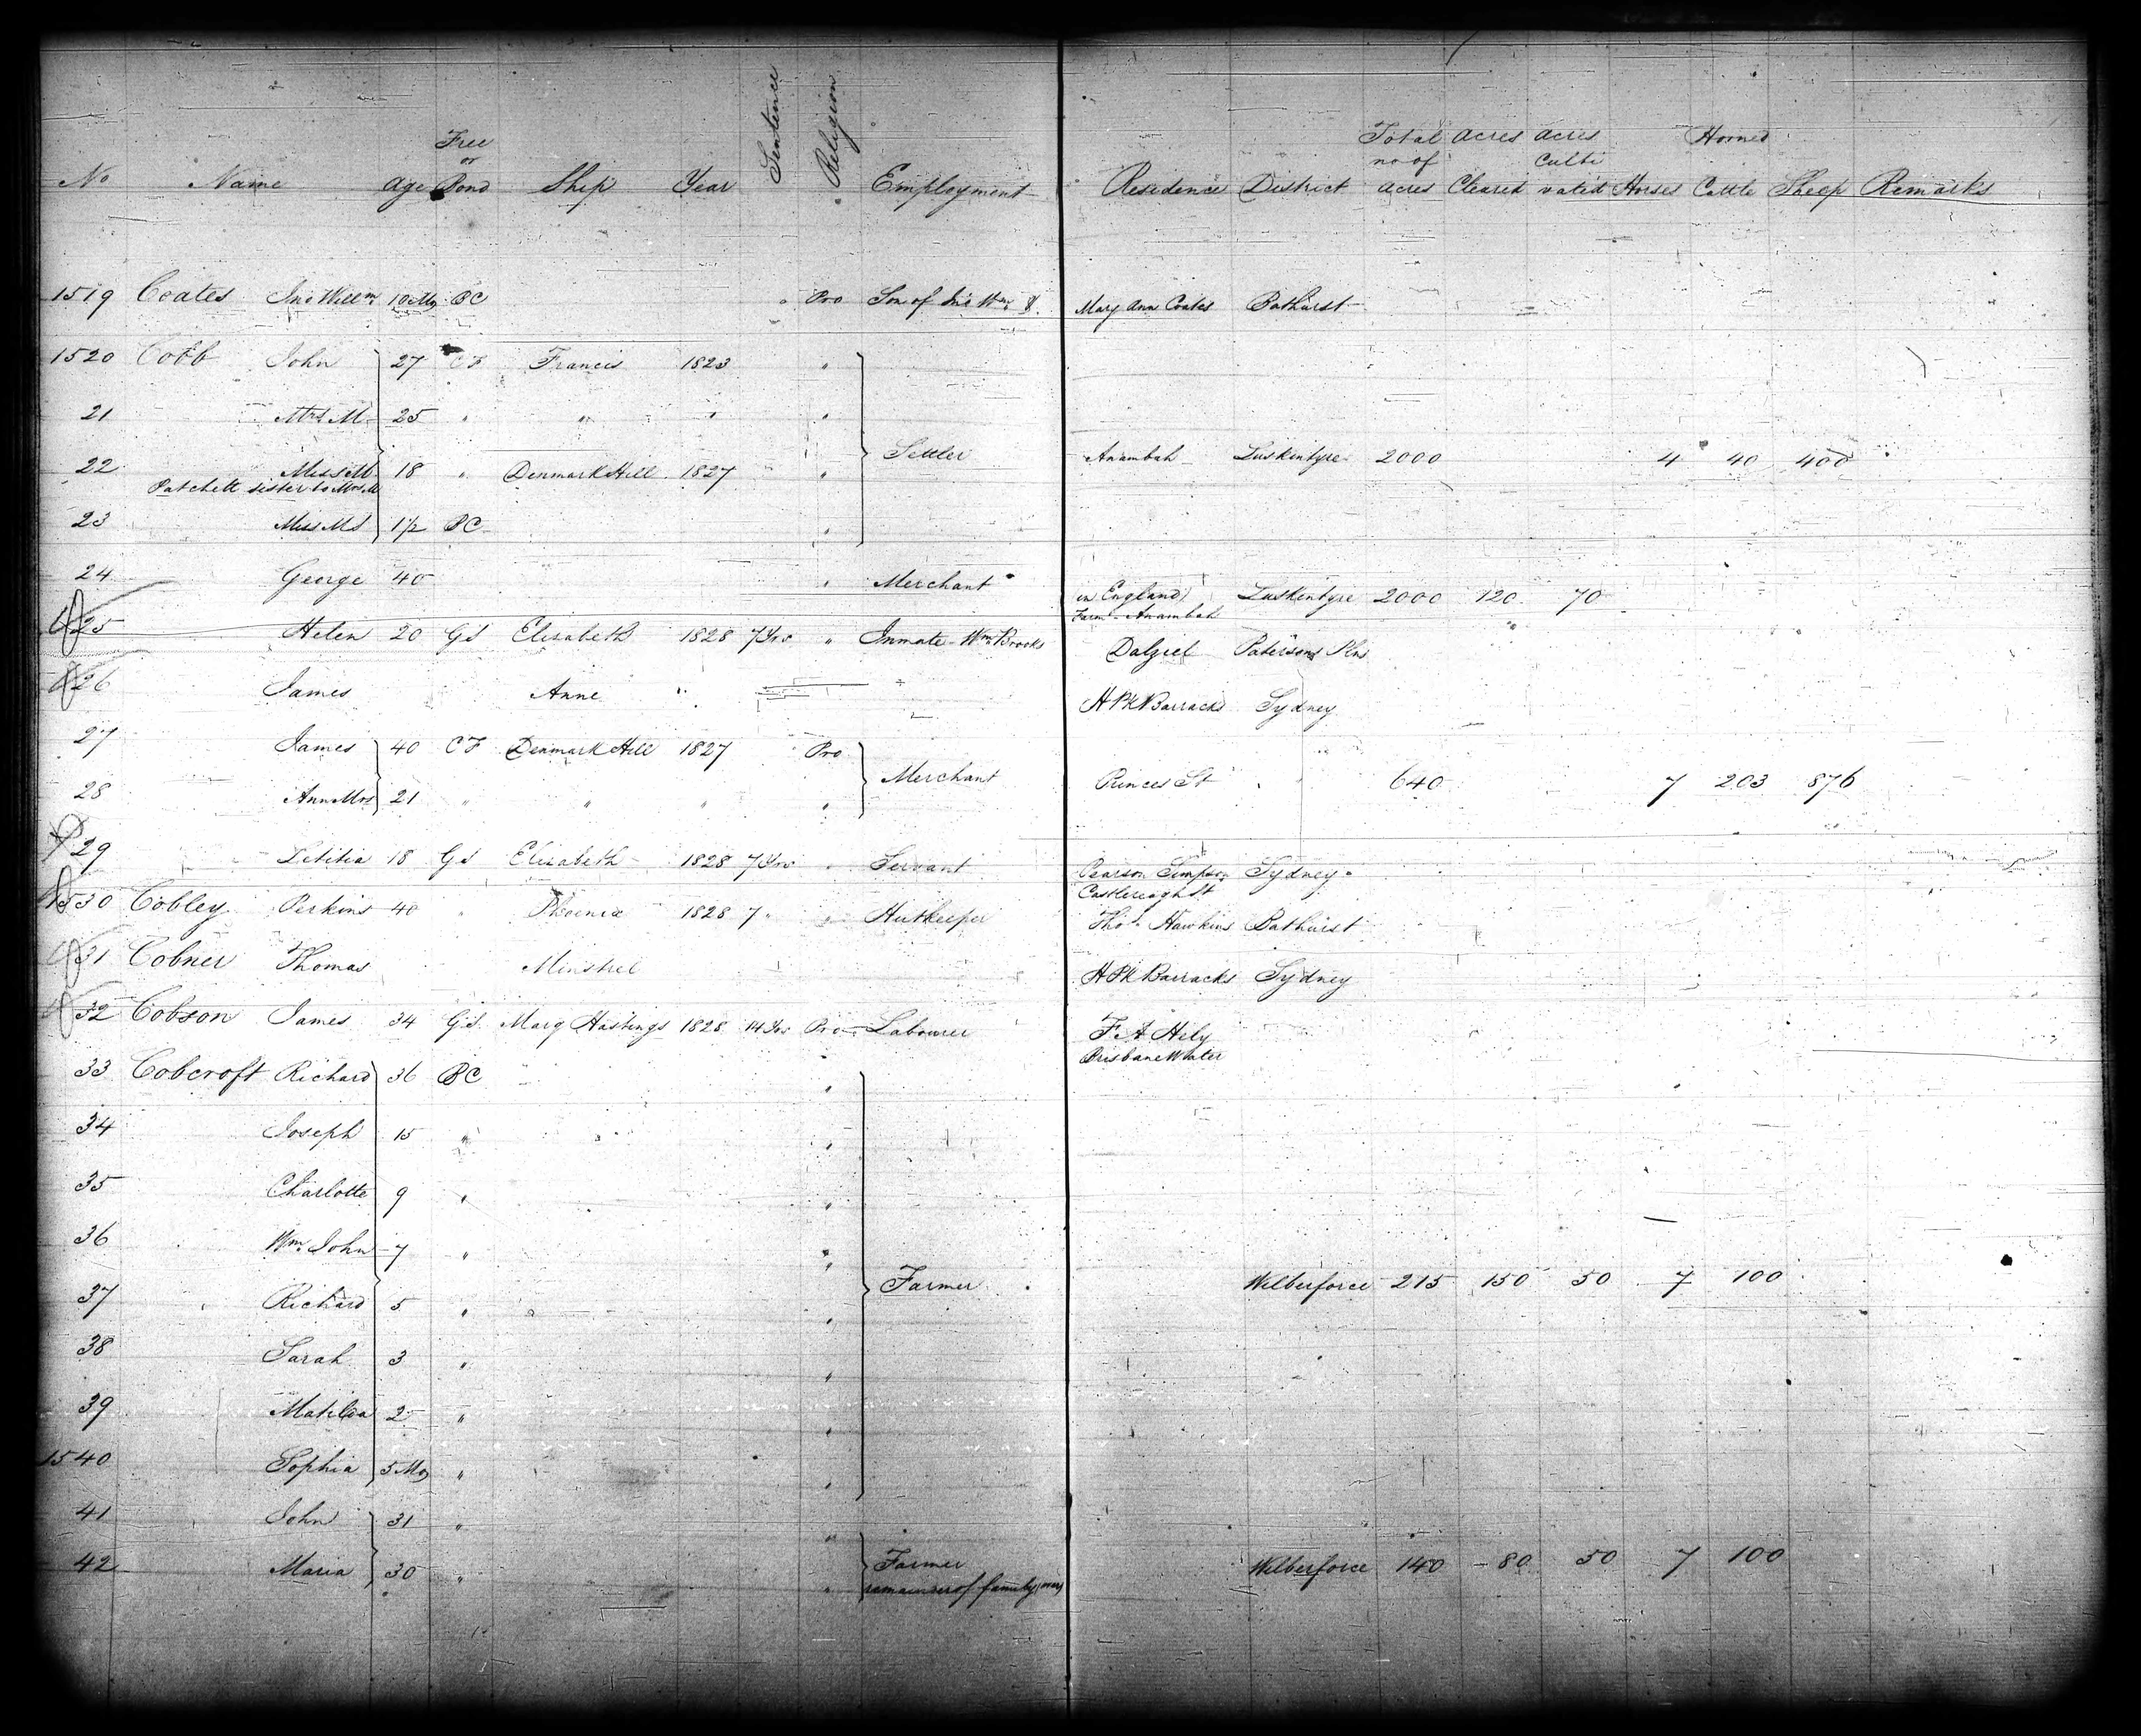 Free
or
No Name Age Bond Ship Year Sentence Religion Employment
Total Acres Acres Horned
no of Culti
Residence District acres Cleared vated Horses Cattle Sheep Remarks
1519 Coates Jno Willm 10 Mos BC Pro Son of Jno Wm & Mary Ann Coates Bathurst
1520 Cobb John 27 CF Francis 1823 "
21 Mrs M 25 " " " "
Settler Anambah Luskintyre 2000 4 40 400
22 Miss M 18 " Denmark Hill 1827 "
Patchett sister to Mrs M
23 Miss M S 1½ BC "
24 George 40 " Merchant in England Luskintyre 2000 120 70
Farm Anambah
25 Helen 20 GS Elizabeth 1828 7 Yrs " Inmate Wm Brooks Dalziel Patersons Plns
26 James Anne " H Pk Barracks Sydney
27 James 40 CF Denmark Hill 1827 Pro
Merchant Princes St " 640 7 203 876
28 Ann Mrs 21 " " " "
29 Letitia 18 GS Elizabeth 1828 7 Yrs " Servant Pearson Simpson Sydney
Castlereagh St
1530 Cobley Perkins 40 " Phoenix 1828 7 " " Hutkeeper Thos Hawkins Bathurst
31 Cobner Thomas Minstrel H Pk Barracks Sydney
32 Cobson James 34 GS Marq Hastings 1828 14 Yrs Pro Labourer F A Hely
Brisbane Water
33 Cobcroft Richard 36 BC "
34 Joseph 15 " "
35 Charlotte 9 " "
36 Wm John 7 " "
Farmer Wilberforce 215 150 50 7 100
37 Richard 5 " "
38 Sarah 3 " "
39 Matilda 2 " "
1540 Sophia 5 Mos " "
41 John 31 " "
Farmer Wilberforce 140 80 50 7 100
42 Maria 30 " " remainder of family